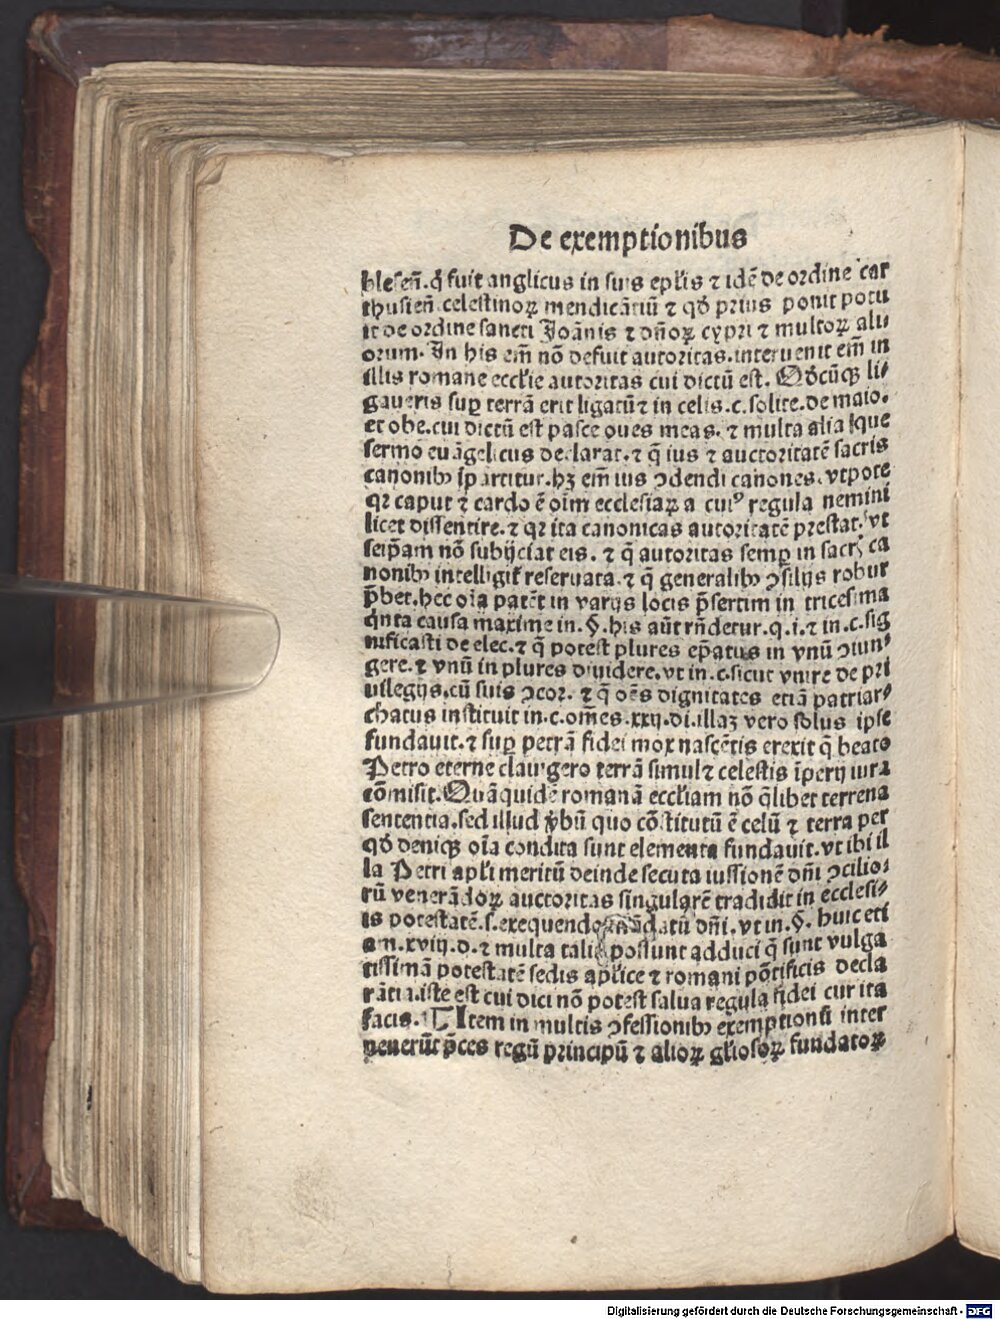 De exemptionibus
blesen̄. q̄ fuit anglicus in suis ep̄l̄is ⁊ idē de ordine car
thusien̄ celestinoꝝ mendicātiū ⁊ qḋ prius ponit potu
it de ordine sancti Joānis ⁊ dn̄oꝝ cypri ⁊ multoꝝ alii
orum. In his em̄ nō defuit autoritas. interuenit em̄ in
illis romane eccl̄ie autoritas cui dictū est. Qḋcūqꝫ li⸗
gaueris suꝑ terrā erit ligatū ⁊ in celis. c. solite. de maio.
et obe. cui dictū est pasce oues meas. ⁊ multa alia que
sermo euāgelicus declarat. ⁊ q̄ ius ⁊ auctoritatē sacris
canonibꝰ īpartitur. hꝫ em̄ ius ꝯdendi canones. vtpote
qꝛ caput ⁊ cardo ē oīm ecclesiaꝝ a cuiꝰ regula nemini
licet dissentire. ⁊ qꝛ ita canonicas autoritatē prestat. vt
seip̄am nō subijciat eis. ⁊ q̄ autoritas semꝑ in sacr̄ ca
nonibꝰ intelligit᷑ reseruata. ⁊ q̄ generalibꝰ ꝯsilijs robur
p̄bet. hec oīa patēt in varijs locis p̄sertim in tricesima
q̄nta causa maxime in. §. his aūt rn̄detur. q. i. ⁊ in. c. sig
nificasti de elec. ⁊ q̄ potest plures ep̄atus in vnū ꝯiun⸗
gere. ⁊ vnū in plures diuidere. vt in. c. sicut vnire de pri
uilegijs. cū suis ꝯcor. ⁊ q̄ oēs dignitates etiā patriar⸗
chatus instituit in. c. om̄es. xxij. di. illaꝫ vero solus ipse
fundauit. ⁊ suꝑ petrā fidei mox nascētis erexit q̄ beato
Petro eterne clauigero terrā simul ⁊ celestis īperij iura
cōmisit. Quāquidē romanā eccl̄iam nō q̄libet terrena
sententia. sed illud v̄bū quo cōstitutū ē celū ⁊ terra per
qḋ deniqꝫ oīa condita sunt elementa fundauit. vt ibi il
la Petri apl̄i meritū deinde secuta iussionē dn̄i ꝯcilio⸗
rū venerādoꝝ auctoritas singularē tradidit in ecclesi⸗
is potestatē. s. exequendo mādatū dn̄i. vt in. §. huic eti
am. xviij. d. ⁊ multa talia possunt adduci q̄ sunt vulga
tissimā potestatē sedis apl̄ice ⁊ romani pōtificis decla
rātia. iste est cui dici nō potest salua regula fidei cur ita
facis. ¶ Item in multis ꝯfessionibꝰ exemptionū inter
uenerūt p̄ces regū principū ⁊ alioꝝ gl̄iosoꝝ fundatoꝝ
Digitalisierung gefördert durch die Deutsche Forschungsgemeinschaft - DFG